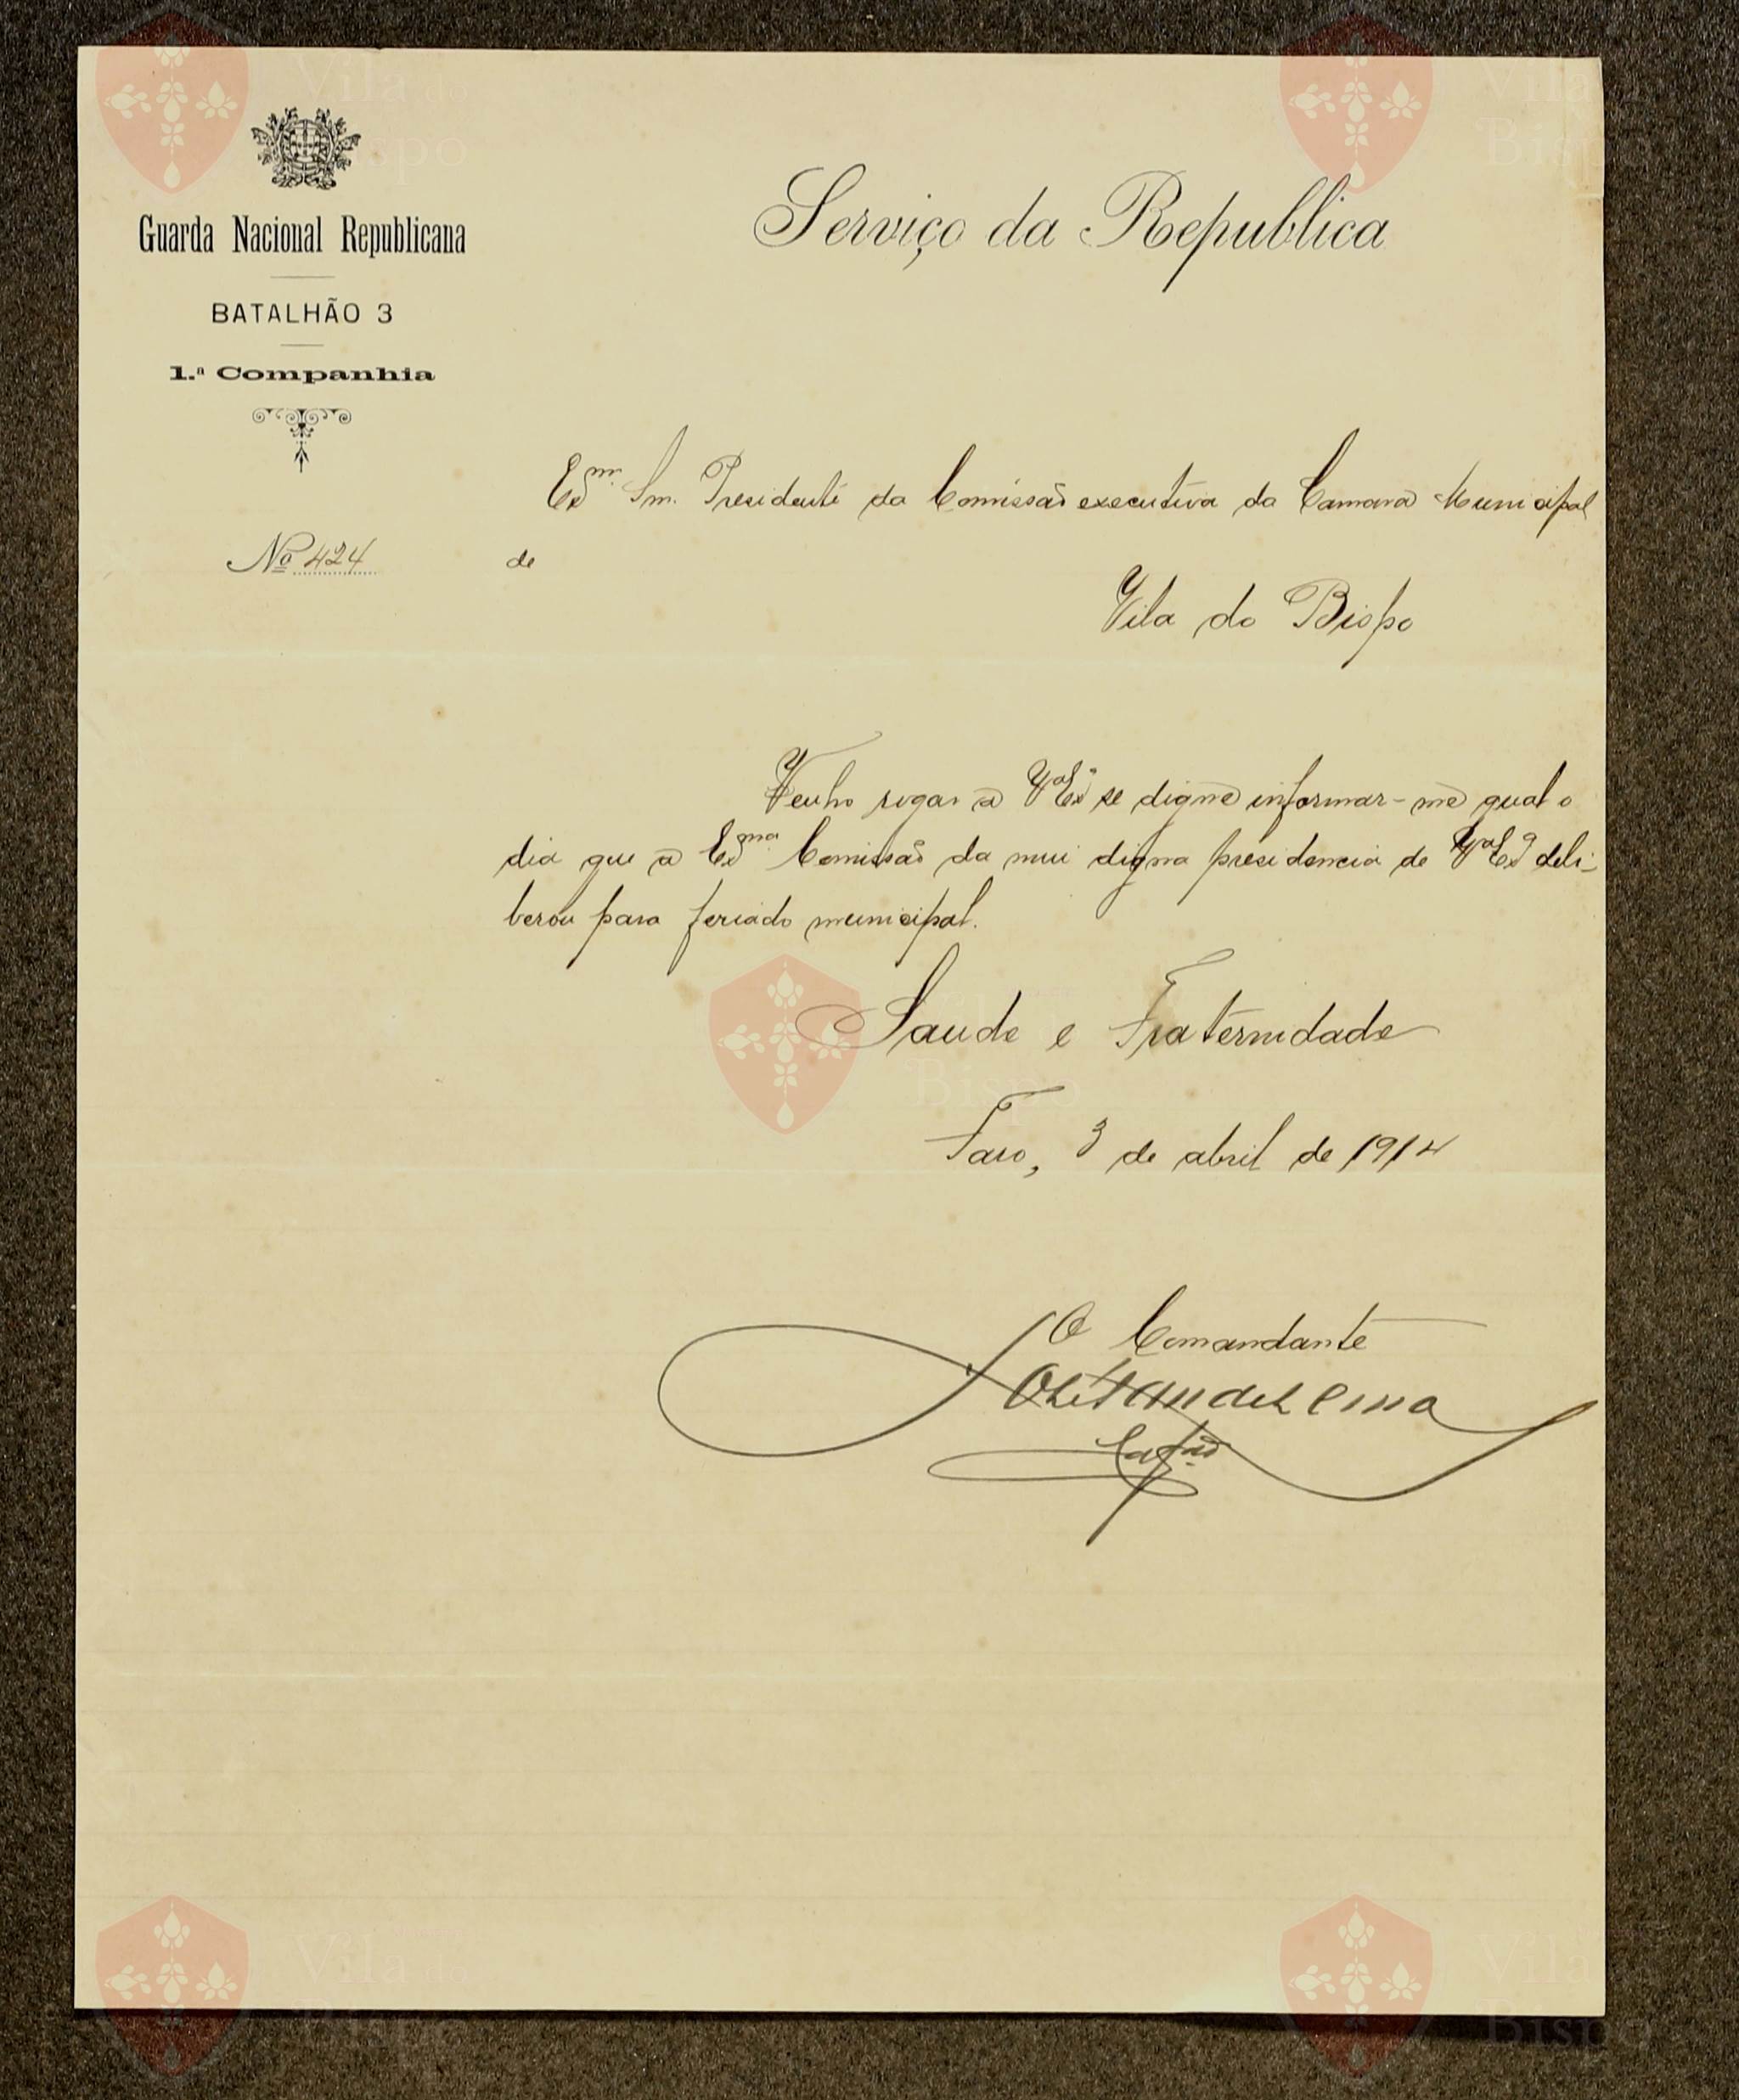 Guarda Nacional Republicana
BATALHÃO 3
1.ª Companhia
Nº 424
Serviço da Republica
Exmo. Snr. Presidente da Comissão executiva da Camara Municipal
de
Vila do Bispo
Venho rogar a VªExª se digne informar-me qual o
dia que a Exma Comissão da mui digna presidencia de VªExª deli-
berou para feriado municipal.
Saude e Fraternidade
Faro, 3 de abril de 1914
O Comandante
Capão
Vila do
Bispo
Vila
Bispo
Vila do
Bispo
Vila do
Bispo
Vila
Bispo